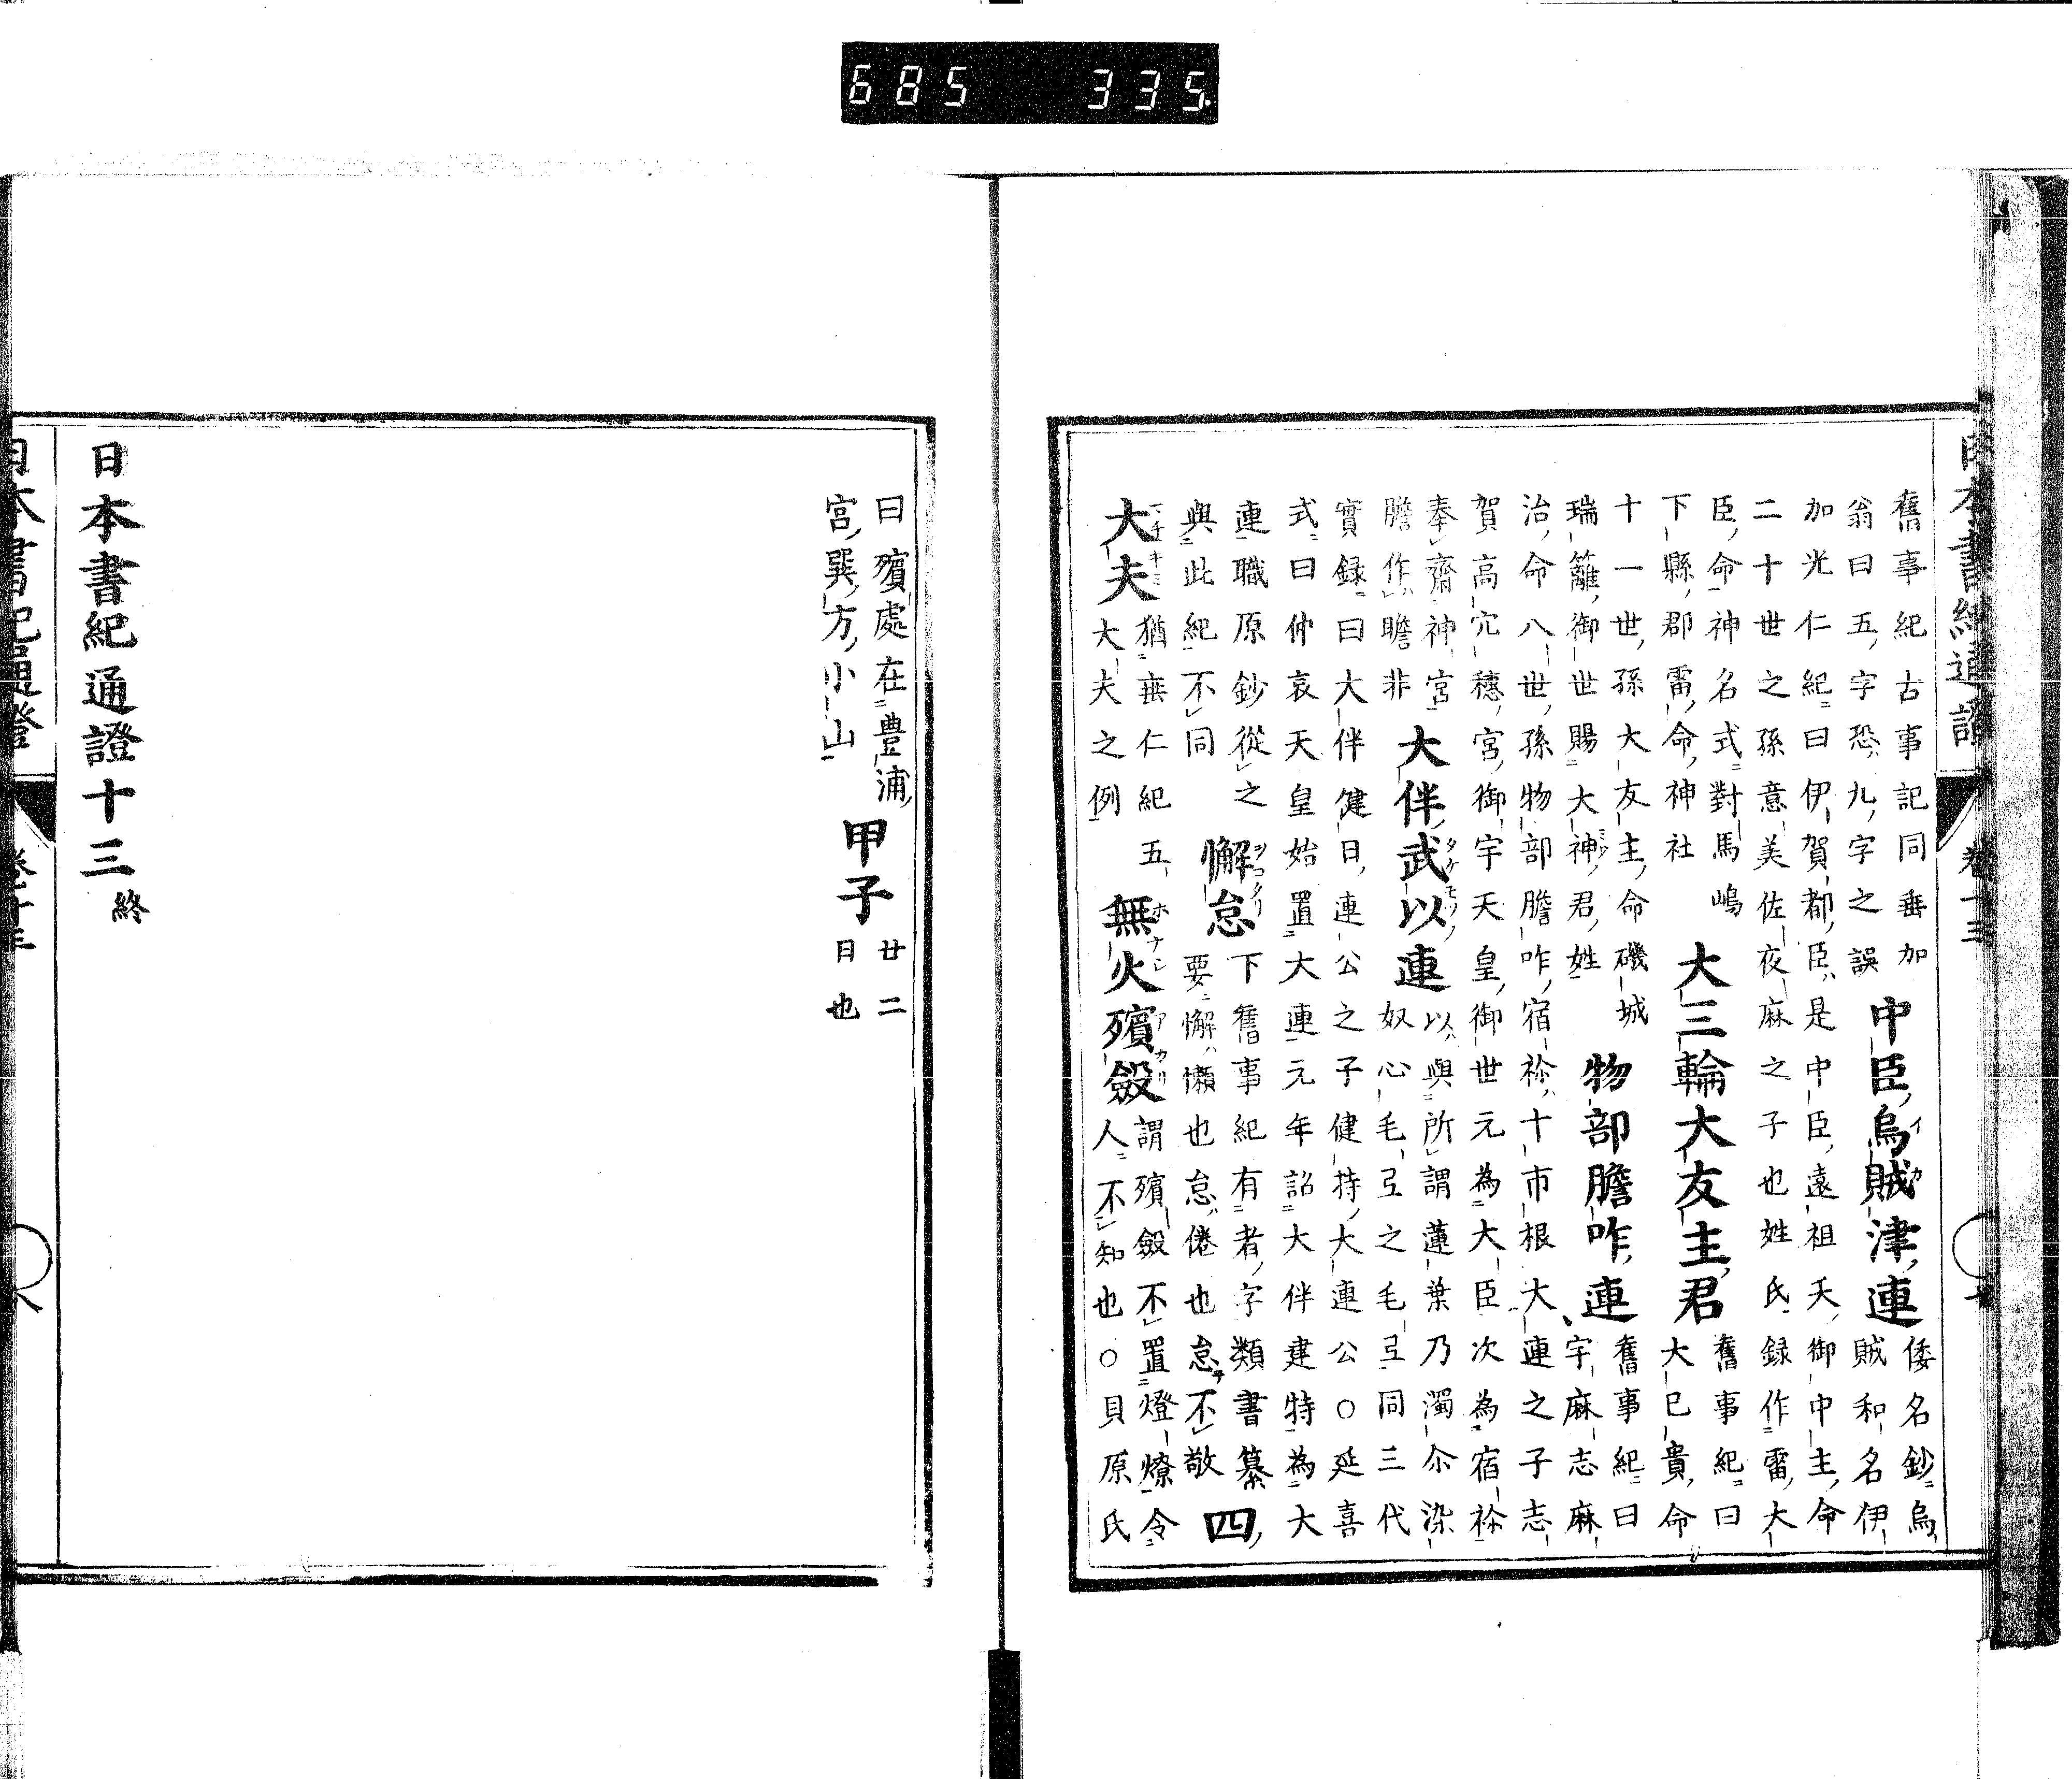 日本書紀通證 卷十三
舊事紀古事記同垂加
翁曰五字恐九字之誤
中臣烏賊津連
倭名鈔烏
賊和名伊
加光仁紀曰伊賀都臣是中臣遠祖天御中主命
二十世之孫意美佐夜麻之子也姓氏録作雷大
臣命神名式對馬嶋
下縣郡雷命神社
大三輪大友主君
舊事紀曰
大已貴命
十一世孫大友主命磯城
瑞籬御世賜大神君姓
物部膽咋連
舊事紀曰
宇麻志麻
治命八世孫物部膽咋宿祢十市根大連之子志
賀高穴穗宮御宇天皇御世元為大臣次為宿祢
奉齋神宮
膽作瞻非
大伴武以連
以與所謂蓮葉乃濁尓染
奴心毛弖之毛弖同三代
實録曰大伴健日連公之子健持大連公○延喜
式曰仲哀天皇始置大連元年詔大伴建特為大
連職原鈔從之
與此紀不同
懈怠
下舊事紀有者字類書纂
要懈懶也怠倦也怠不敬
四
大夫
猶垂仁紀五
大夫之例
無火殯斂
謂殯斂不置燈燎令
人不知也○貝原氏
曰殯處在豊浦
宮巽方小山
甲子
廿二
日也
日本書紀通證十三終
日本書紀通證
685 335